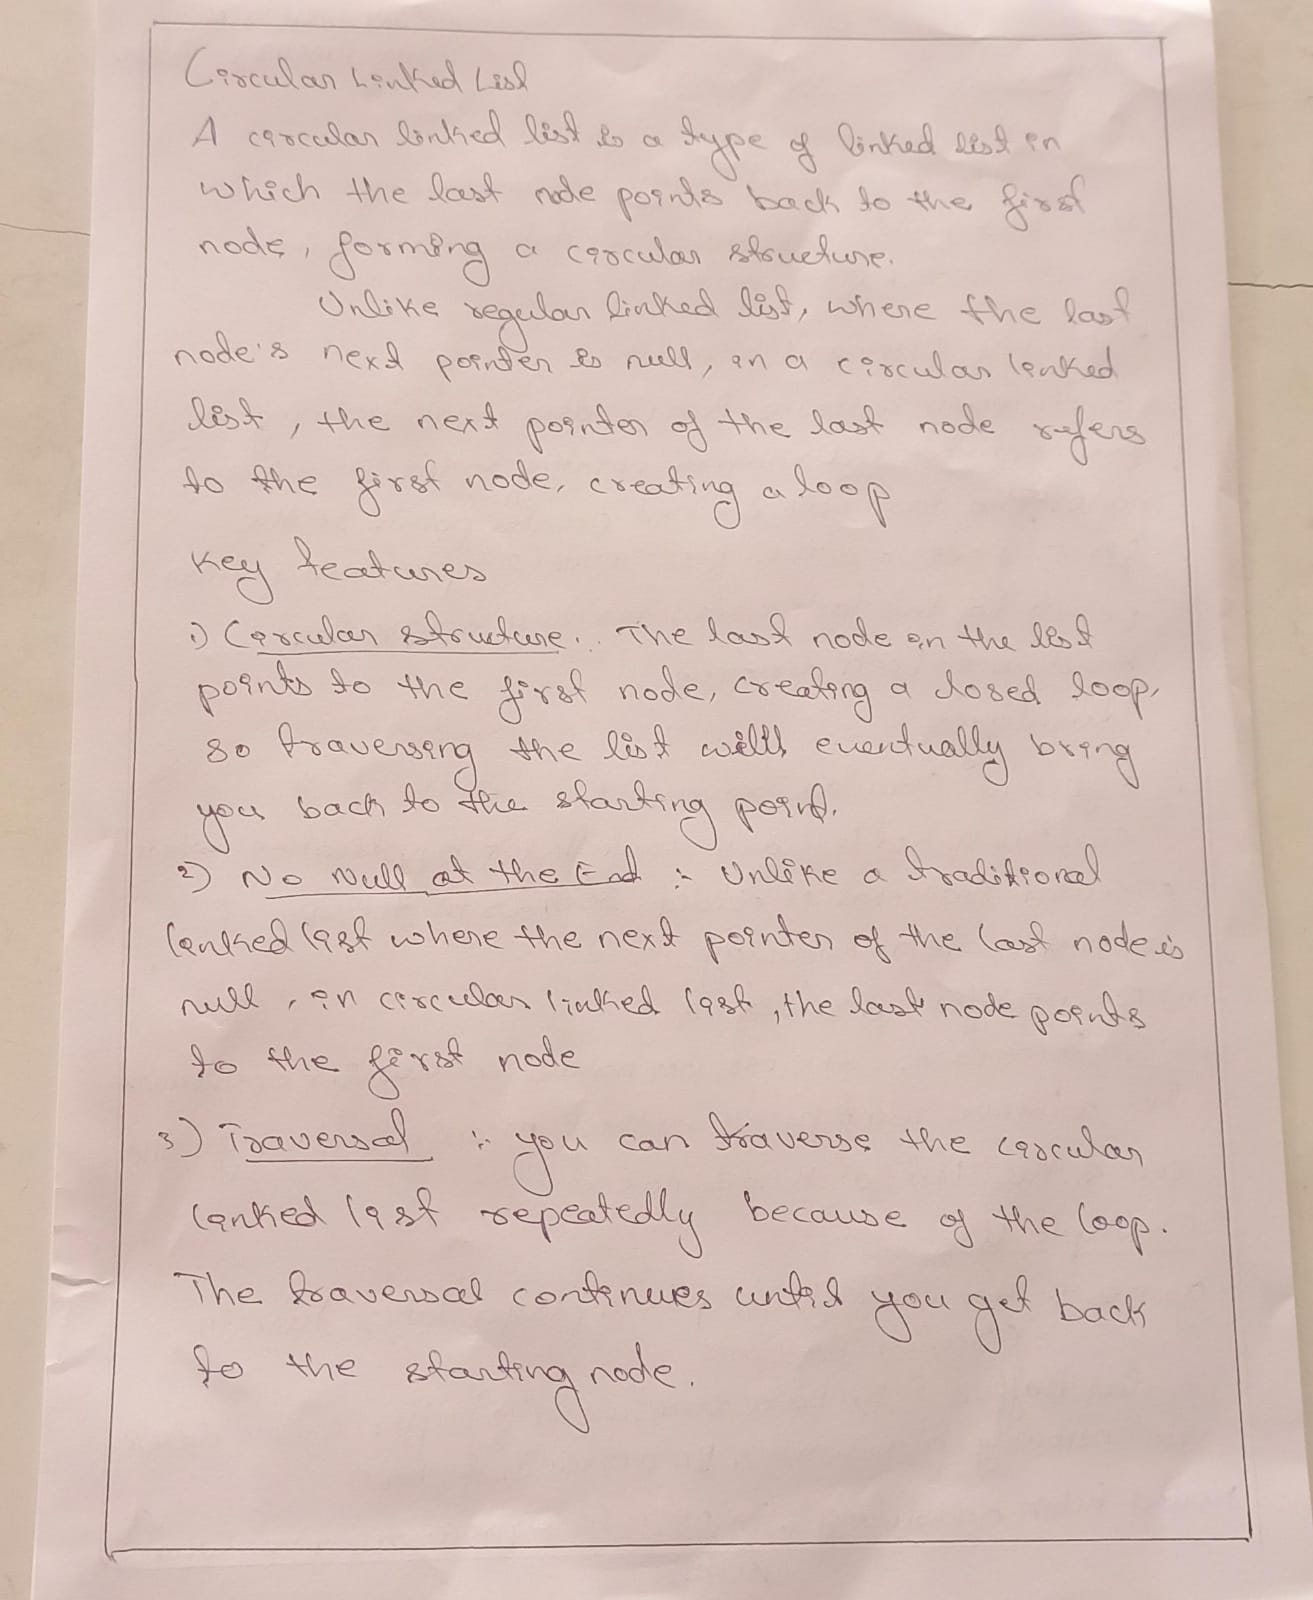 Circular Linked List
A circular linked list is a type of linked list in
which the last node points back to the first
node, forming a circular structure.
Unlike regular linked list, where the last
node's next pointer is null, in a circular linked
list, the next pointer of the last node refers
to the first node, creating a loop
Key features
1) Circular structure:. The last node in the list
points to the first node, creating a closed loop,
so traversing the list will eventually bring
you back to the starting point.
2) No Null at the End :- Unlike a traditional
linked list where the next pointer of the last node is
null, in circular linked list, the last node points
to the first node
3) Traversal :- you can traverse the circular
linked list repeatedly because of the loop.
The traversal continues until you get back
to the starting node.